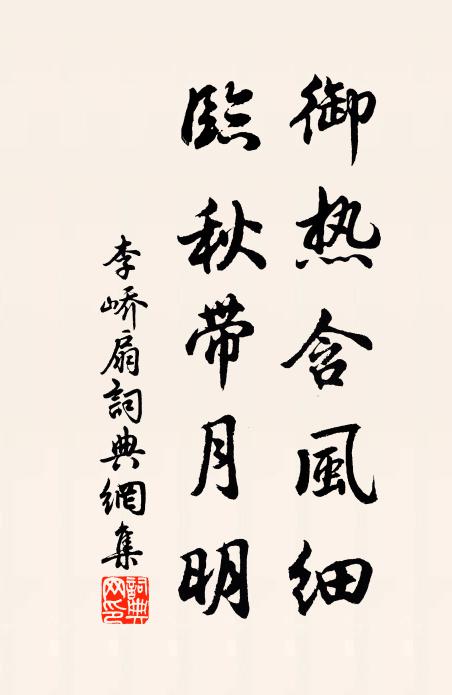 御热含風細
臨秋带月明
李峤扇詞典網集
詞典網印